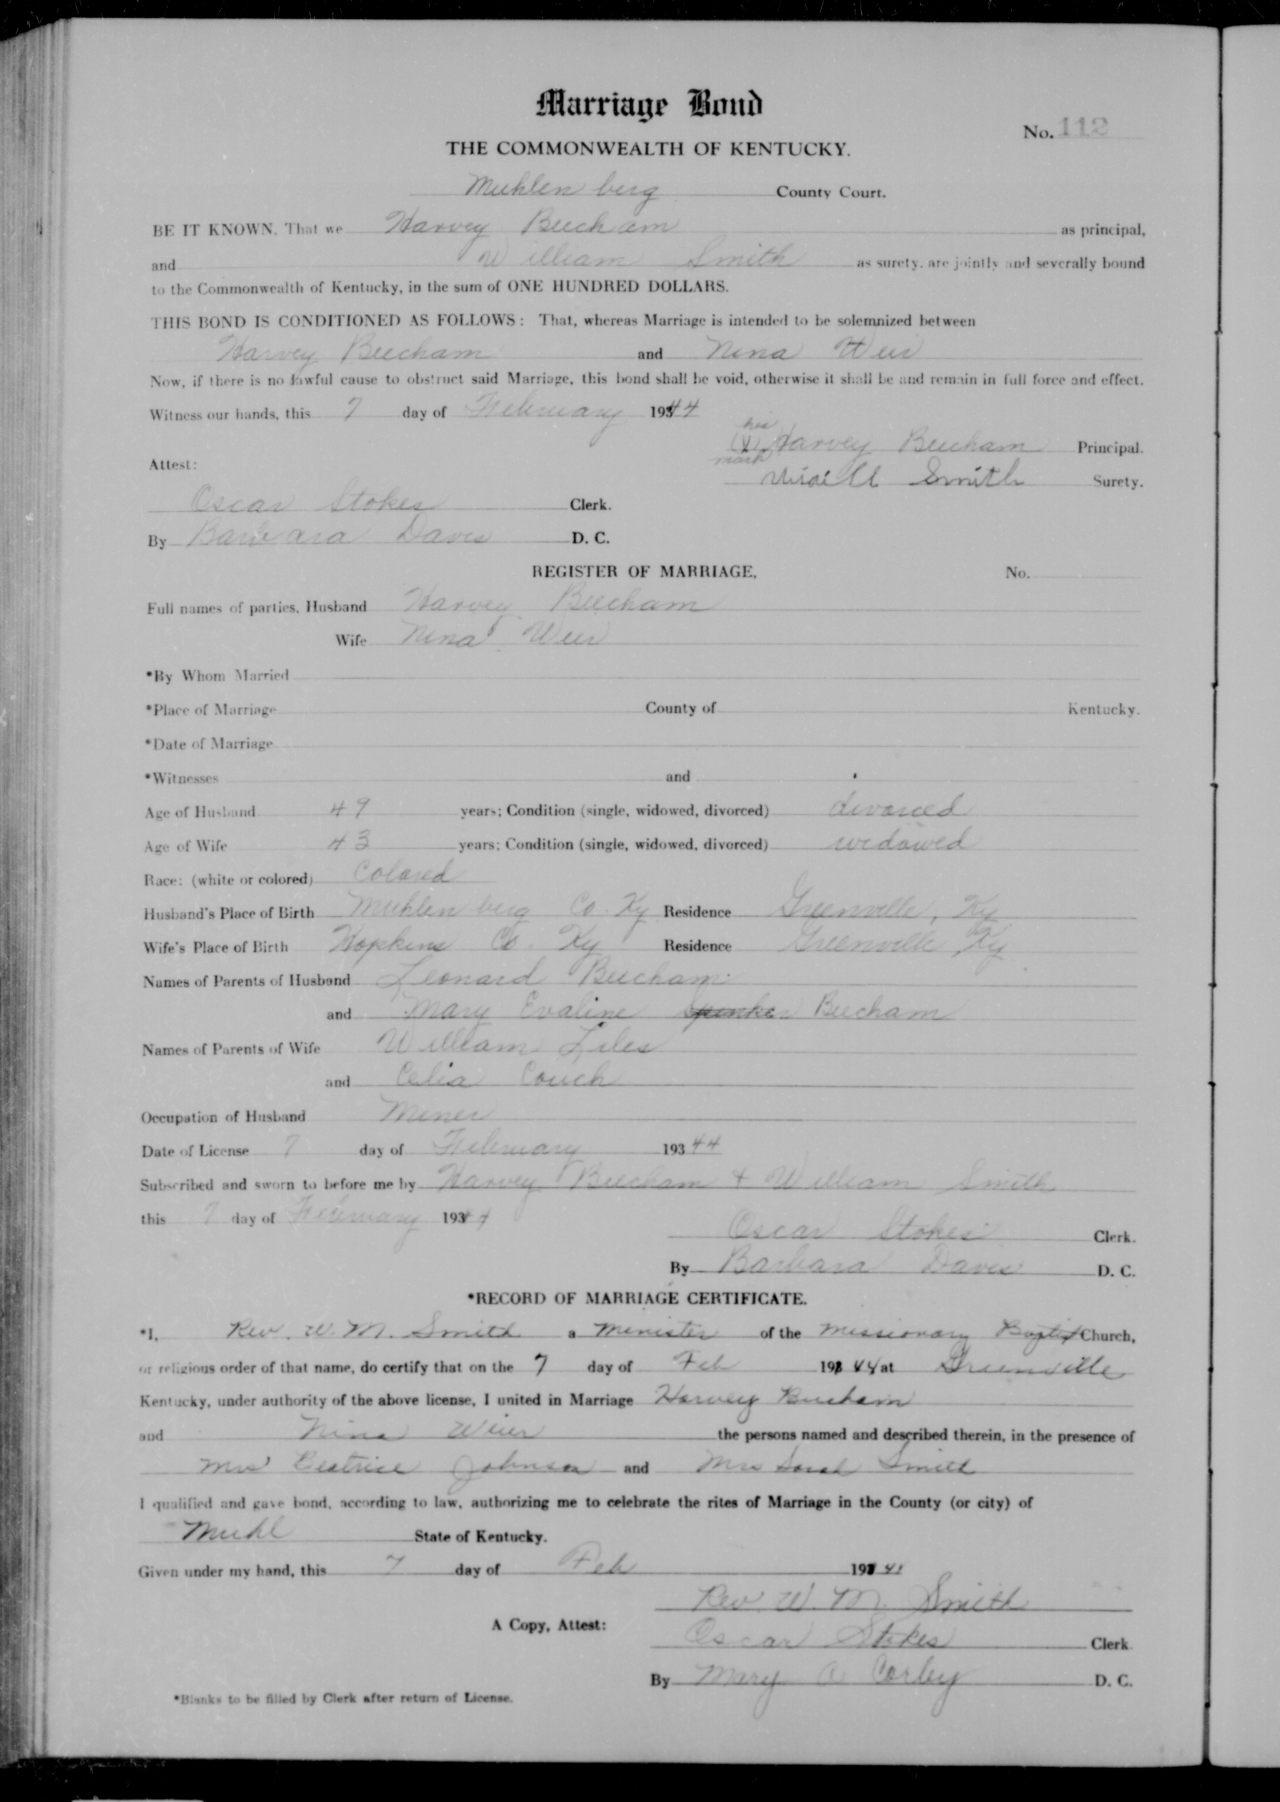 Marriage Bond
No. 112
THE COMMONWEALTH OF KENTUCKY.
Muhlenberg County Court.
BE IT KNOWN, That we Harvey Beecham as principal,
and William Smith as surety, are jointly and severally bound
to the Commonwealth of Kentucky, in the sum of ONE HUNDRED DOLLARS.
THIS BOND IS CONDITIONED AS FOLLOWS: That, whereas Marriage is intended to be solemnized between
Harvey Beecham and Nina Weir
Now, if there is no lawful cause to obstruct said Marriage, this bond shall be void, otherwise it shall be and remain in full force and effect.
Witness our hands, this 7 day of February 1944
his
(X) Harvey Beecham Principal.
mark
Attest:
Smith Surety.
Oscar Stokes Clerk.
By Barbara Davis D. C.
REGISTER OF MARRIAGE, No.
Full names of parties, Husband Harvey Beecham
Wife Nina Weir
*By Whom Married
*Place of Marriage County of Kentucky.
*Date of Marriage
*Witnesses and
Age of Husband 49 years; Condition (single, widowed, divorced) divorced
Age of Wife 43 years; Condition (single, widowed, divorced) widowed
Race: (white or colored) Colored
Husband's Place of Birth Muhlenberg Co. Ky Residence Greenville, Ky
Wife's Place of Birth Hopkins Co. Ky Residence Greenville, Ky
Names of Parents of Husband Leonard Beecham
and Mary Evaline Beecham
Names of Parents of Wife William Liles
and Celia Couch
Occupation of Husband Miner
Date of License 7 day of February 19344
Subscribed and sworn to before me by Harvey Beecham & William Smith
this 7 day of February 1944
Oscar Stokes Clerk.
By Barbara Davis D. C.
*RECORD OF MARRIAGE CERTIFICATE.
*I, Rev. W. M. Smith a Minister of the Missionary Baptist Church,
or religious order of that name, do certify that on the 7 day of Feb 1944 at Greenville
Kentucky, under authority of the above license, I united in Marriage Harvey Beecham
and Nina Wier the persons named and described therein, in the presence of
Mrs Beatrice Johnson and Mrs Sarah Smith
I qualified and gave bond, according to law, authorizing me to celebrate the rites of Marriage in the County (or city) of
Muhl State of Kentucky.
Given under my hand, this 7 day of Feb 19
Rev. W. M. Smith
A Copy, Attest: Oscar Stokes Clerk
By Mary A Corley D. C.
*Blanks to be filled by Clerk after return of License.